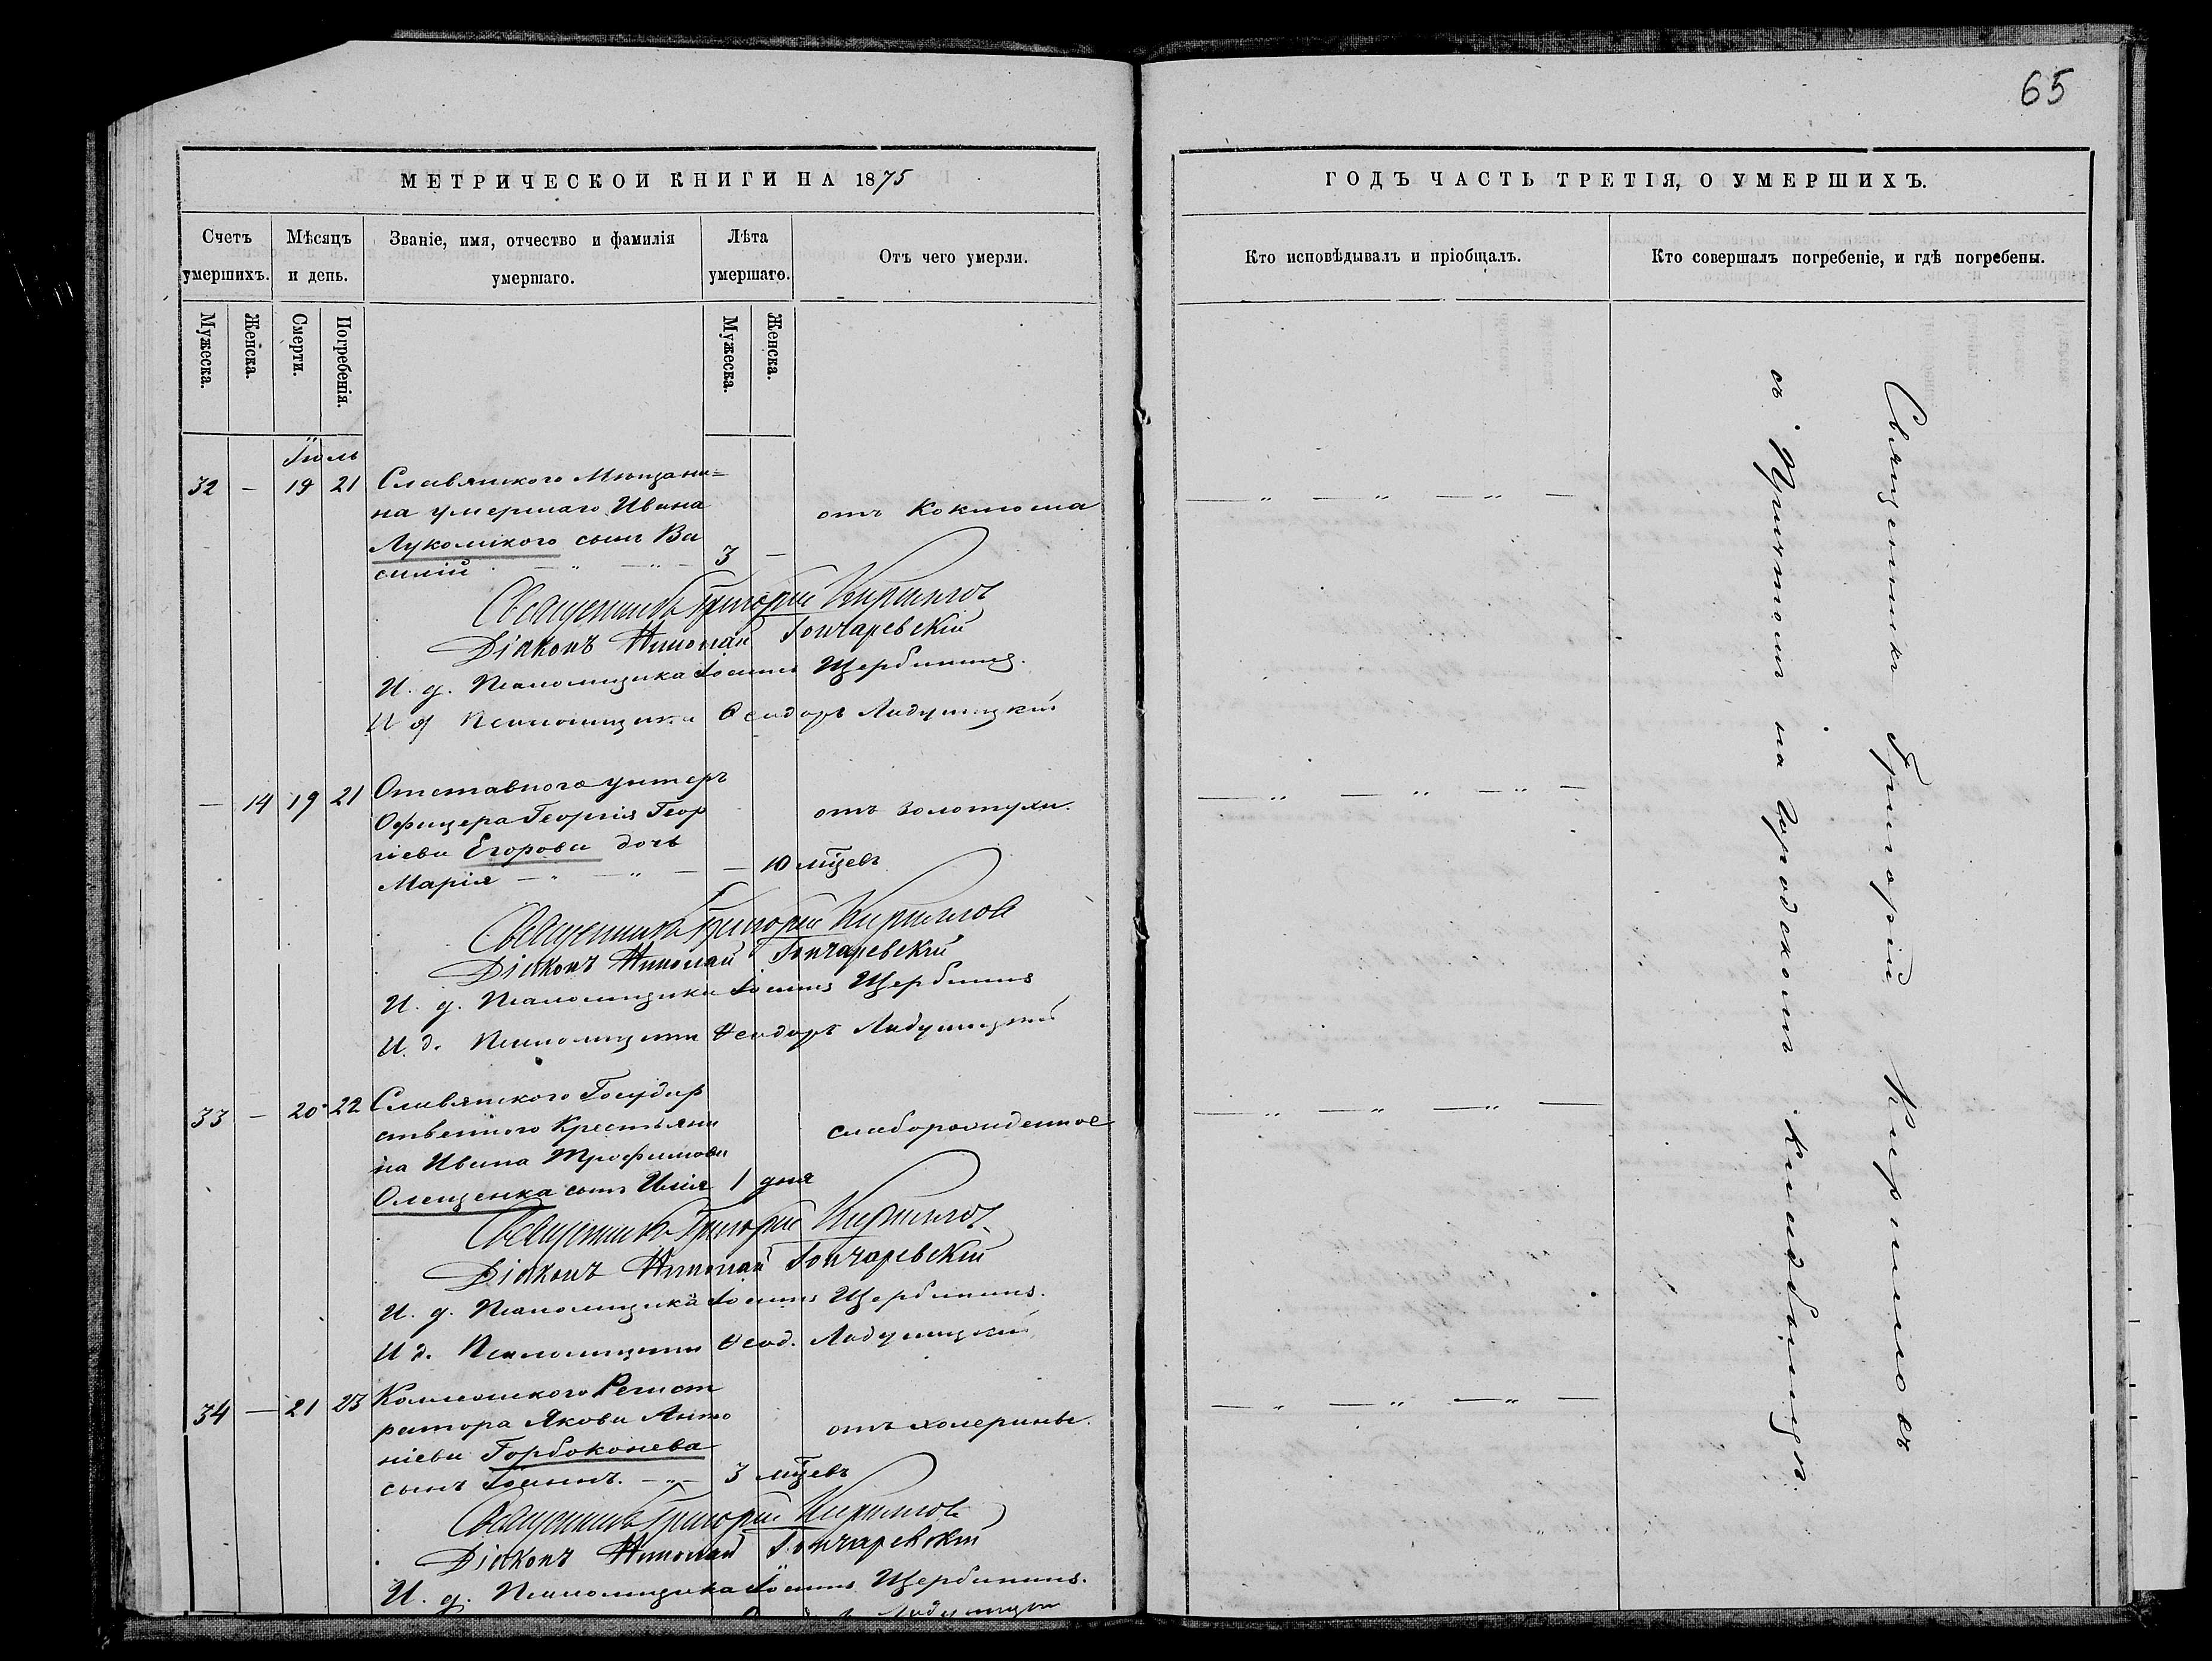 65
МЕТРИЧЕСКОЙ КНИГИ НА 1875
ГОДЪ ЧАСТЬ ТРЕТІЯ, О УМЕРШИХЪ.
Счетъ умершихъ.
Мѣсяцъ и день.
Званіе, имя, отчество и фамилія умершаго.
Лѣта умершаго.
Отъ чего умерли.
Кто исповѣдывалъ и пріобщалъ.
Кто совершалъ погребеніе, и гдѣ погребены.
Мужеска.
Женска.
Смерти.
Погребенія.
Мужеска.
Женска.
Іюль
32 — 19 21 Славянского Мѣщани=
на умершаго Ивана отъ Коклюша
Лукомского сынъ Ва 3 —
силій — „ — „ —
Священникъ Григорій Кирилловъ
Діаконъ Николай Гончаревскій
И. д. Псаломщика Іоаннъ Щербининъ.
И д Псаломщика Ѳеодоръ Ладушицкій
— 14 19 21 Отставного унтеръ
Офицера Георгія Геор отъ золотухи.
гіева Егорова дочь
Марія — „ — „ — — 10 мѣсцевъ
Священникъ Григорій Кирилловъ
Діаконъ Николай Гончаревскій
И. д. Псаломщика Іоаннъ Щербининъ
И. д. Псаломщика Ѳеодоръ Ладушицкій
33 — 20 22 Славянского Государ
ственного Крестьяни слаборожденное
на Ивана Трофимова
Олещенка сынъ Илія 1 дня
Священникъ Григорій Кирилловъ
Діаконъ Николай Гончаревскій
И. д. Псаломщика Іоаннъ Щербининъ.
И д. Псаломщика Ѳеод. Ладушицкій
34 — 21 23 Коллежского Регист
ратора Якова Анто отъ холерины.
ніева Горбоконева
сынъ Іоаннъ. — „ — 3 мѣсцевъ
Священникъ Григорій Кирилловъ
Діаконъ Николай Гончаревскій
И. д. Псаломщика Іоаннъ Щербининъ.
Ладушицкі
Священникъ Григорій Кирилловъ
съ Причтомъ на городскомъ кладбищѣ.